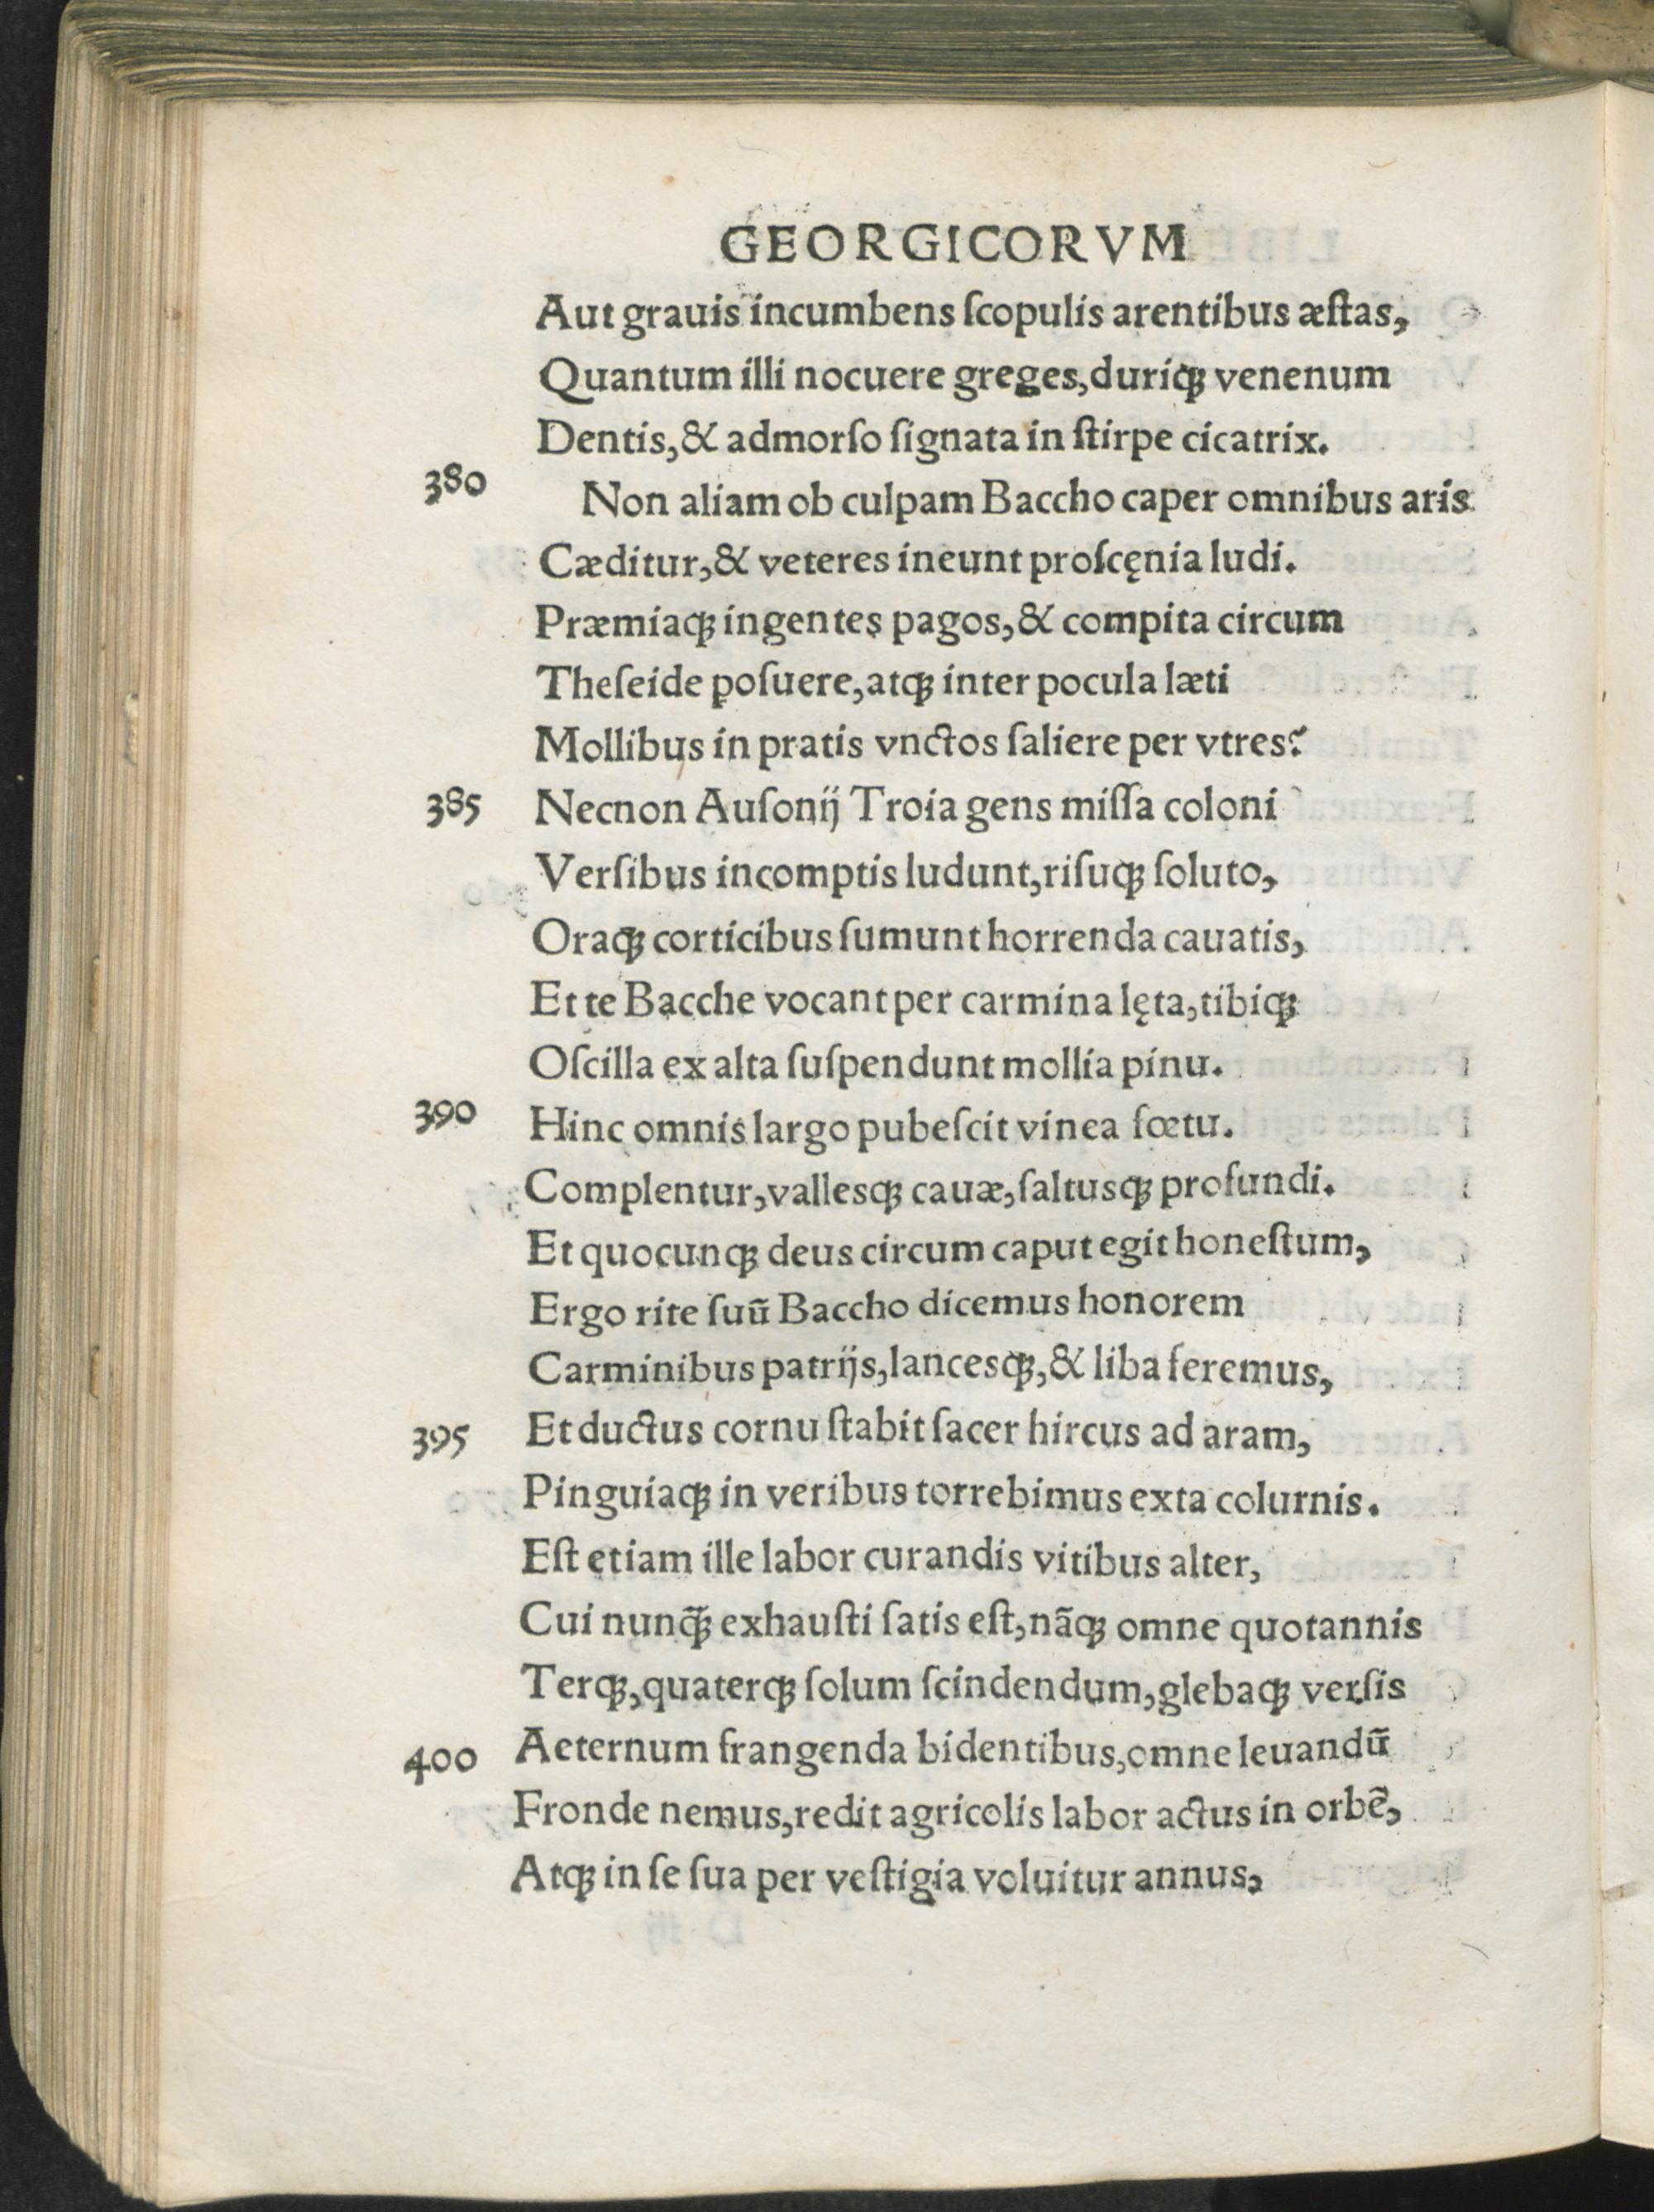 GEORGICORVM
Aut grauis incumbens ſcopulis arentibus æſtas,
Quantum illi nocuere greges,duriqꝫ venenum
Dentis,& admorſo ſignata in ſtirpe cicatrix.
380 Non aliam ob culpam Baccho caper omnibus aris
Cæditur,& veteres ineunt proſcęnia ludi.
Præmiaqꝫ ingentes pagos,& compita circum
Theſeide poſuere,atqꝫ inter pocula læti
Mollibus in pratis vnctos ſaliere per vtres?
385 Necnon Auſonij Troia gens miſſa coloni
Verſibus incomptis ludunt,riſuqꝫ ſoluto,
Oraqꝫ corticibus ſumunt horrenda cauatis,
Et te Bacche vocant per carmina lęta,tibiqꝫ
Oſcilla ex alta ſuſpendunt mollia pinu.
390 Hinc omnis largo pubeſcit vinea fœtu.
Complentur,vallesqꝫ cauæ,ſaltusqꝫ profundi.
Et quocunqꝫ deus circum caput egit honeſtum,
Ergo rite ſuū Baccho dicemus honorem
Carminibus patrijs,lancesqꝫ,& liba feremus,
395 Et ductus cornu ſtabit ſacer hircus ad aram,
Pinguiaqꝫ in veribus torrebimus exta colurnis.
Eſt etiam ille labor curandis vitibus alter,
Cui nunq̃ꝫ exhauſti ſatis eſt,nāqꝫ omne quotannis
Terqꝫ,quaterqꝫ ſolum ſcindendum,glebaqꝫ verſis
400 Aeternum frangenda bidentibus,omne leuandū
Fronde nemus,redit agricolis labor actus in orbē,
Atqꝫ in ſe ſua per veſtigia voluitur annus,